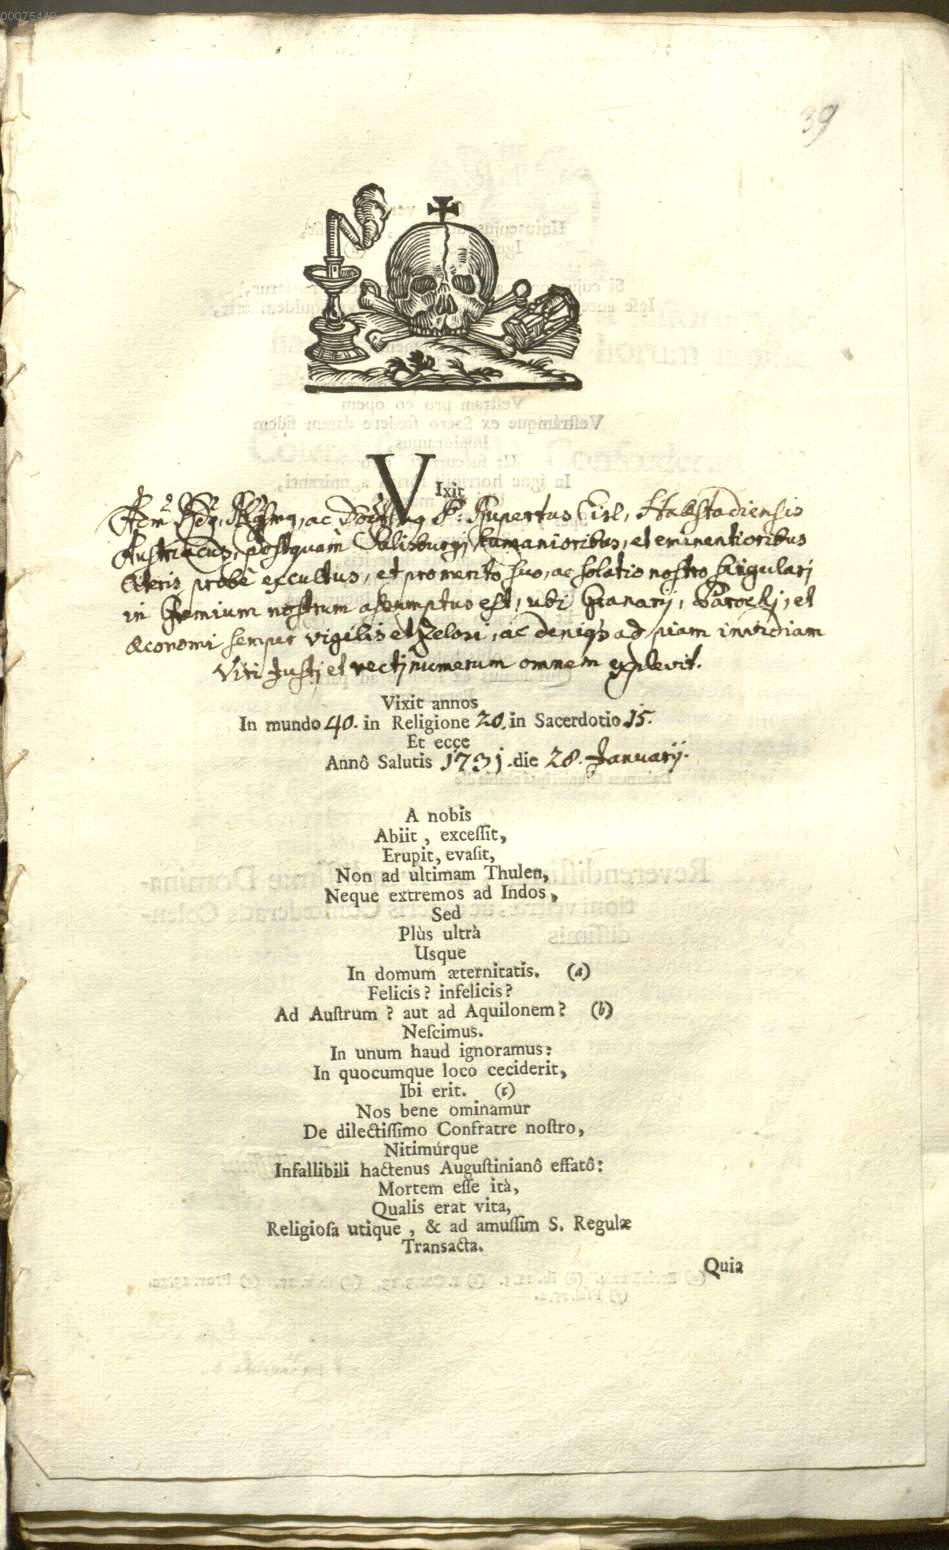 00075442
39
VIxit
Adm. Rdg, Relgsmg, ac Doctssmg P: Rupertus Cirl, Hallstadiensis
Austriacus, postquam Salisburgi, humanioribus, et eminentioribus
literis probè excultus, et pro merito suo, ac solatio nostro singulari
in Gremium nostrum assumptus est, ubi Granarij, Parochi, et
Œconomi semper vigilis et Zelosi, ac deniqs ad piam invidiam
Viri justi et recti numerum omnem explevit.
Vixit annos
In mundo 40. in Religione 20. in Sacerdotio 15.
Et ecce
Annô Salutis 1731. die 28. Januarij.
A nobis
Abiit, exceſſit,
Erupit, evaſit,
Non ad ultimam Thulen,
Neque extremos ad Indos,
Sed
Plùs ultrà
Usque
In domum æternitatis. (a)
Felicis? infelicis?
Ad Auſtrum? aut ad Aquilonem? (b)
Neſcimus.
In unum haud ignoramus:
In quocumque loco ceciderit,
Ibi erit. (c)
Nos bene ominamur
De dilectiſſimo Confratre noſtro,
Nitimúrque
Infallibili hactenus Auguſtinianô effatô:
Mortem eſſe ità,
Qualis erat vita,
Religioſa utique, & ad amuſſim S. Regulæ
Transacta.
Quia